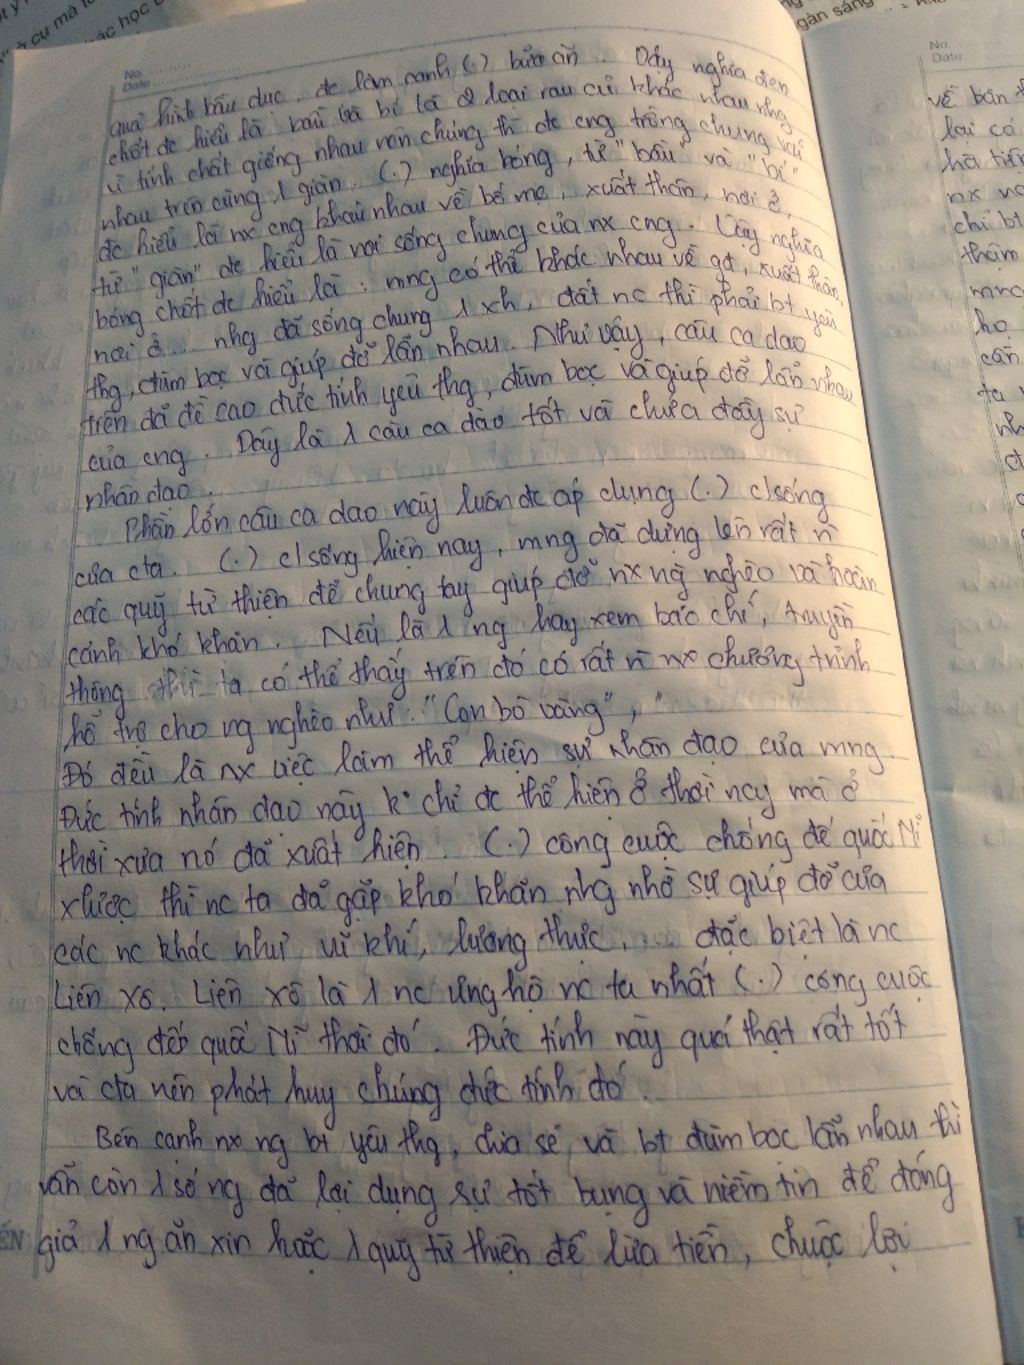 No.
Date
gàn sáng
ác học
quả hình bầu dục, dc làm canh (.) bữa ăn. Dấy nghĩa đen
chốt dc hiểu là bầu và bí là 2 loại rau củ khác nhau nhg
vì tính chất giống nhau nên chúng thì dc cng trồng chung vài
nhau trên cùng 1 giàn. (.) nghĩa bóng, từ "bầu" và "bí"
dc hiểu là nx cng khác nhau về bố mẹ, xuất thân, nơi ở,
từ "giàn" dc hiểu là nơi sống chung của nx cng. Vậy nghĩa
bóng chốt dc hiểu là: mng có thể khác nhau về gđ, xuất thân,
nơi ở... nhg đã sống chung 1 xh, đất nc thì phải bt yêu
thg, đùm bọc và giúp đỡ lẫn nhau. Như vậy, câu ca dao
trên đã đề cao đức tính yêu thg, đùm bọc và giúp đỡ lẫn nhau
của cng. Đây là 1 câu ca dao tốt và chứa đầy sự
nhân đạo.
Phần lớn câu ca dao này luôn dc áp dụng (.) c/sống
của cta. (.) c/sống hiện nay, mng đã dựng lên rất n
các quỹ từ thiện để chung tay giúp đỡ nx ng nghèo và hoàn
cảnh khó khăn. Nếu là 1 ng hay xem báo chí, truyền
thông thì ta có thể thấy trên đó có rất n nx chương trình
hỗ trợ cho ng nghèo như: "Con bò vàng", "
Đó đều là nx việc làm thể hiện sự nhân đạo của mng.
Đức tính nhân đạo này k° chỉ dc thể hiện ở thời nay mà ở
thời xưa nó đã xuất hiện. (.) công cuộc chống đế quốc Mĩ
xlược thì nc ta đã gặp khó khăn nhg nhờ sự giúp đỡ của
các nc khác như vũ khí, lương thực, ... đặc biệt là nc
Liên Xô. Liên xô là 1 nc ủng hộ nc ta nhất (.) công cuộc
chống đếp quốc Mĩ thời đó. Đức tính này quả thật rất tốt
và cta nên phát huy chúng đức tính đó.
Bên cạnh nx ng bt yêu thg, chia sẻ và bt đùm bọc lẫn nhau thì
vẫn còn 1 số ng đã lợi dụng sự tốt bụng và niềm tin để đóng
giả 1 ng ăn xin hoặc 1 quỹ từ thiện để lừa tiền, chuộc lợi
No.
Date
về bản
lại có
hỏi tiề
nx
chỉ bt
thậm
mnc
họ
cần
ta
nh